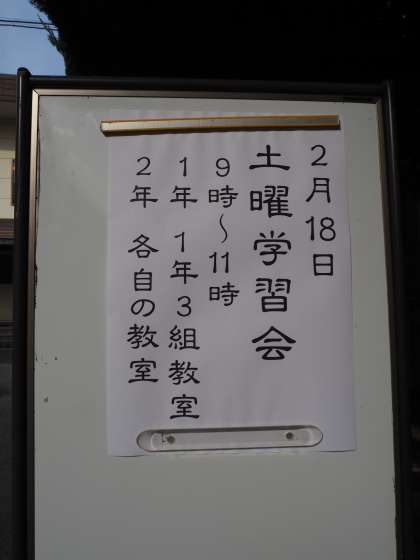 2月18日
土曜学習会
9時～11時
1年 1年3組教室
2年 各自の教室